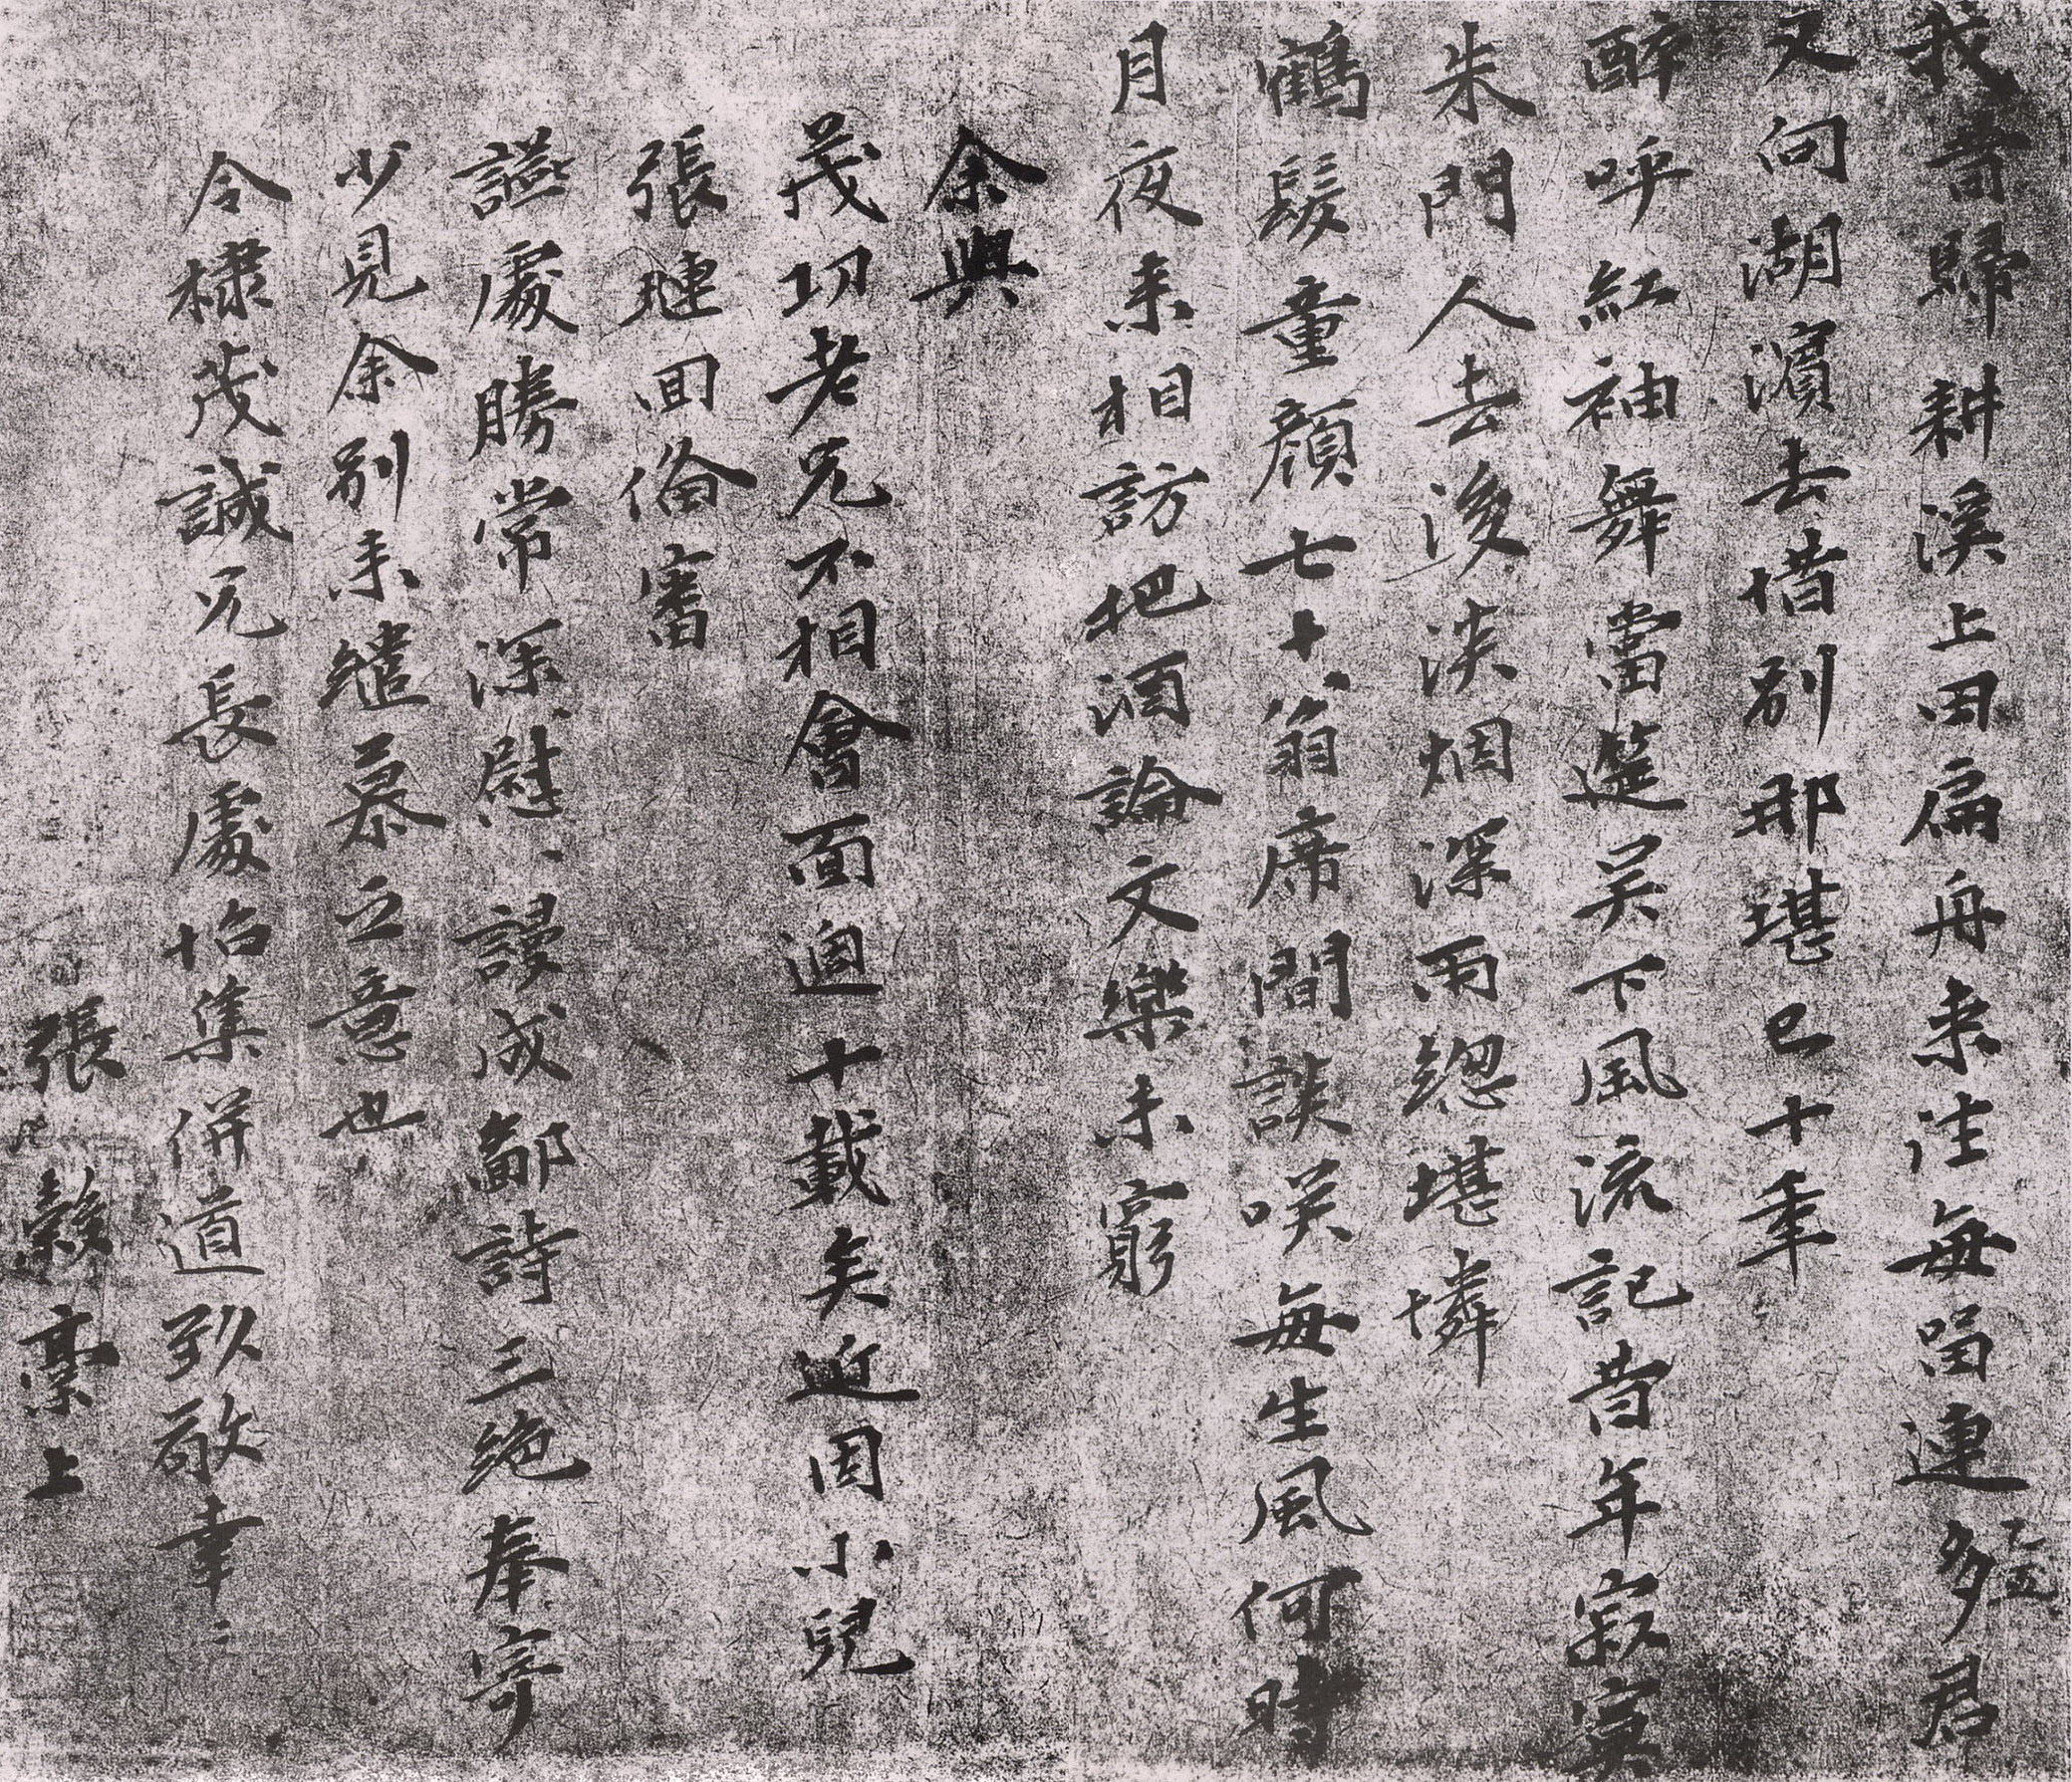 我昔歸耕溪上田扁舟來往每留連多君
又向湖濱去惜別那堪已十年
醉呼紅袖舞當筵吴下風流記昔年寂寞
朱門人去後淡烟深雨緫堪憐
鶴髮童顔七十翁席間談咲每生風何時
月夜来相訪把酒論文樂未窮
余與
茂切老兄不相會面迨十載矣近因小兒
張璉回俻審
讌處勝常深慰謾成鄙詩三絶奉寄
少見余别来繾慕之意也
令棣茂誠兄長處怡集併道致敬幸〻
張縠稾上